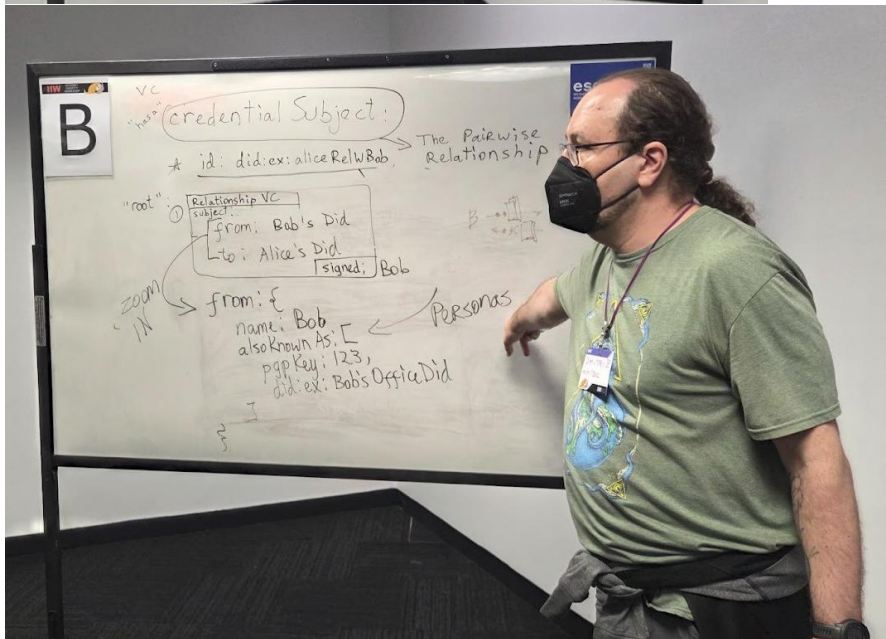 IIW
B
VC
"hasa"
credential Subject:
id: did:ex:aliceRelWBob.
The Pairwise
Relationship
"root":
① Relationship VC
subject:
from: Bob's Did
to: Alice's Did
signed: Bob
B
"ZOOM
IN
from: {
name: Bob
alsoKnownAs: [
pgpKey: 123,
did:ex: Bob's OfficeDid
]
}
Personas
es